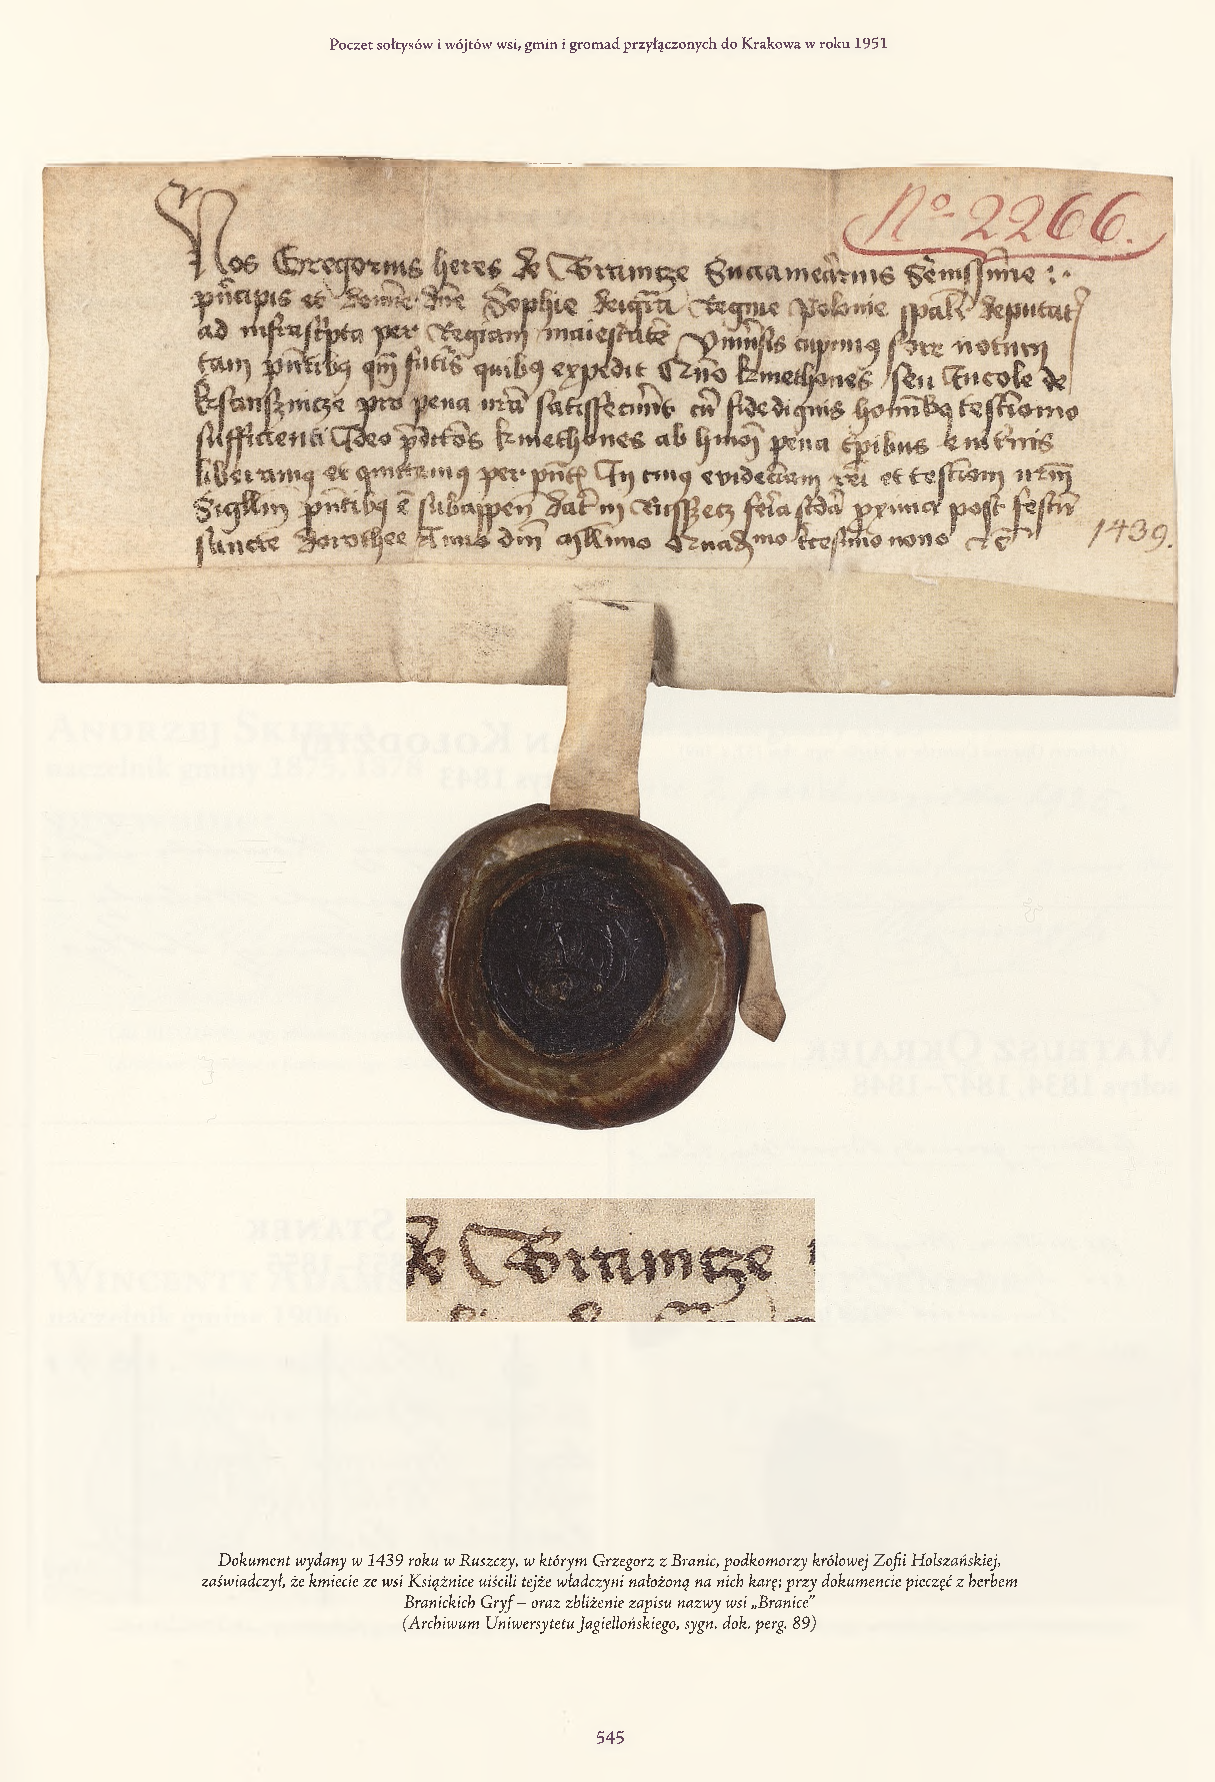 Poczet sołtysów i wójtów wsi, gmin i gromad przyłączonych do Krakowa w roku 1951
No 2266.
Nos Gregorius heres de Branicze Succamerarius Sem̄ssime
pn̄cipis et domine dn̄e Sophie deigrā Regine Polonie spāl deputat
ad infrascpta per Regiam maiestatē Vniūsis cupimus fore notum
tam pn̄tibus qm̄ futīs quibus expedit kmethones seu Incole de
pro pena satisfecer̄nt cū fidedignis homībus testimonio
sufficienti Ideo kmethones ab pena
liberamus et quittamus per pn̄t In cuius evidenciam rei et testiom
Sigillm pn̄tibus ē subappen̄ Dat in Russcz fēia scdā proxima post festū
sancte Dorothee Anno dni nono 1439.
de Branicze
Dokument wydany w 1439 roku w Ruszczy, w którym Grzegorz z Branic, podkomorzy królowej Zofii Holszańskiej,
zaświadczył, że kmiecie ze wsi Książnice uiścili tejże władczyni nałożoną na nich karę; przy dokumencie pieczęć z herbem
Branickich Gryf – oraz zbliżenie zapisu nazwy wsi „Branice”
(Archiwum Uniwersytetu Jagiellońskiego, sygn. dok. perg. 89)
545